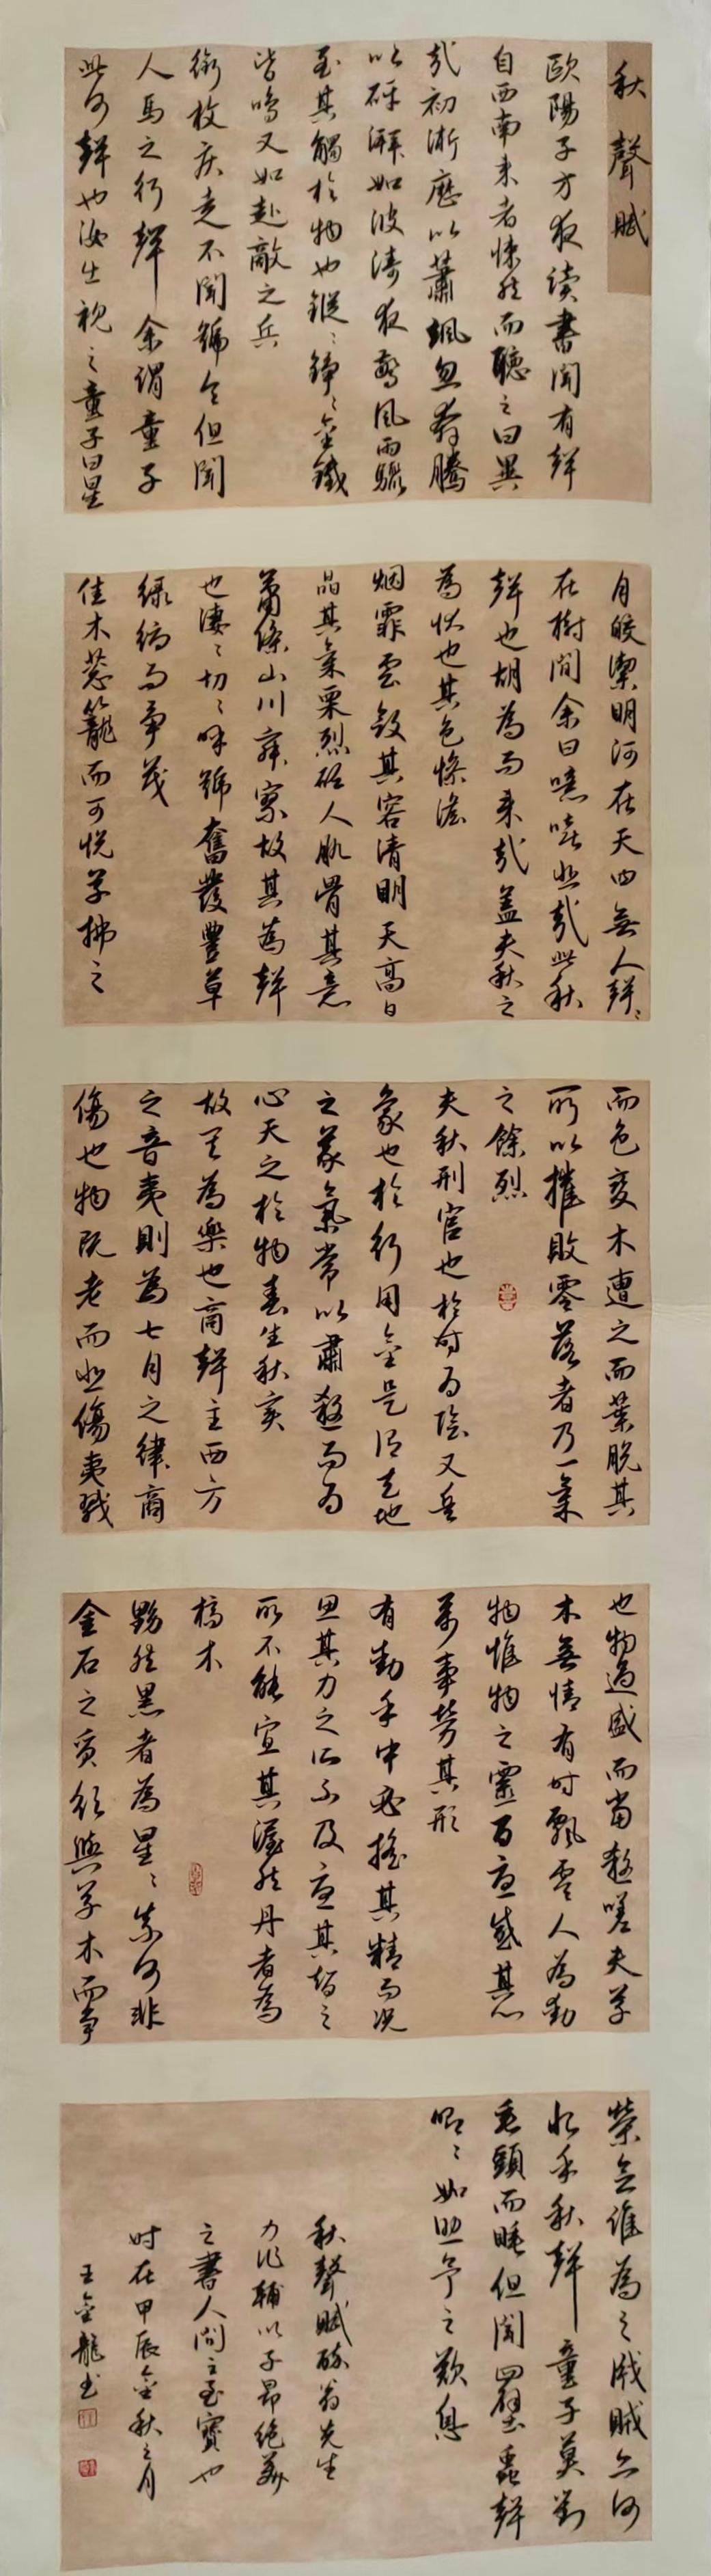 秋聲賦
歐陽子方夜讀書聞有聲
自西南來者悚然而聽之曰異
哉初淅瀝以蕭颯忽奔騰
以砰湃如波濤夜驚風雨驟
至其觸於物也鏦〻錚〻金鐵
皆鳴又如赴敵之兵
銜枚疾走不聞號令但聞
人馬之行聲余謂童子
此何聲也汝出視之童子曰星
月皎潔明河在天四無人聲〻
在樹間余曰噫嘻悲哉此秋
聲也胡為而來哉蓋夫秋之
為狀也其色慘澹
烟霏雲斂其容清明天高日
晶其氣栗烈砭人肌骨其意
蕭條山川寂寥故其為聲
也淒〻切〻呼號奮發豐草
綠縟而爭茂
佳木蔥籠而可悅草拂之
而色變木遭之而葉脫其
所以摧敗零落者乃一氣
之餘烈
夫秋刑官也於时為陰又兵
象也於行用金是谓天地
之義氣常以肅殺而為
心天之於物春生秋實
故其為樂也商聲主西方
之音夷則為七月之律商
傷也物既老而悲傷夷戮
也物過盛而當殺嗟夫草
木無情有时飄零人為動
物惟物之靈百憂感其心
萬事勞其形
有動乎中必搖其精而况
思其力之所不及憂其智之
所不能宜其渥然丹者為
槁木
黟然黑者為星〻奈何非
金石之質欲與草木而爭
榮念誰為之戕賊亦何
恨乎秋聲童子莫對
垂頭而睡但聞四壁蟲聲
唧〻如助予之歎息
秋聲賦醉翁先生
力作輔以子昂絕美
之書人間之至寶也
时在甲辰金秋之月
王金龍书